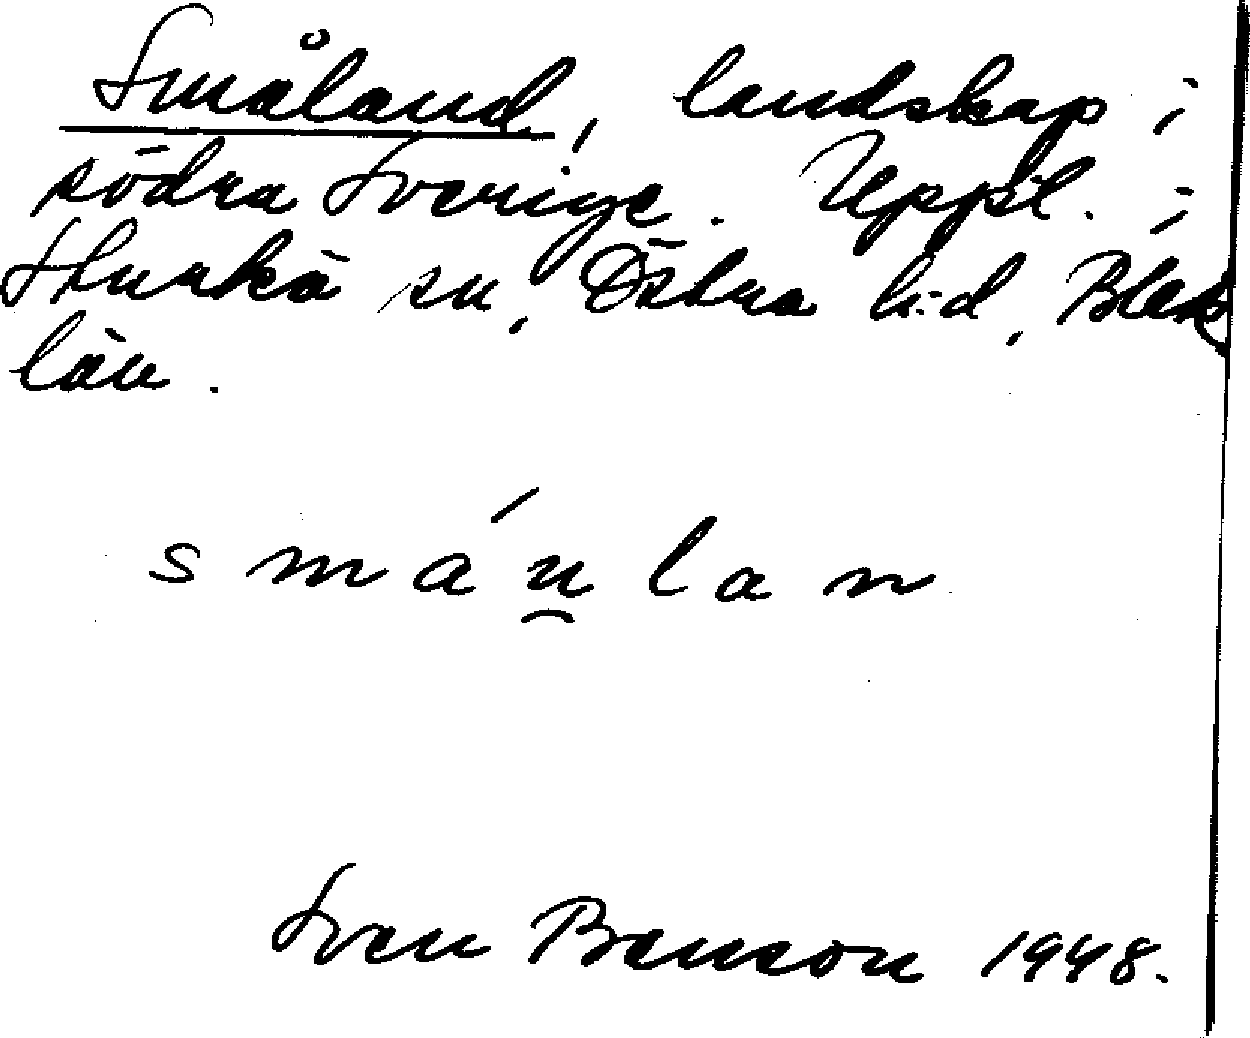 Småland, landskap i
södra Sverige. Uppt. i
Sturkö sn, Östra hd, Blek
län.
s m a ú̯ l a n
Sven Benson 1948.